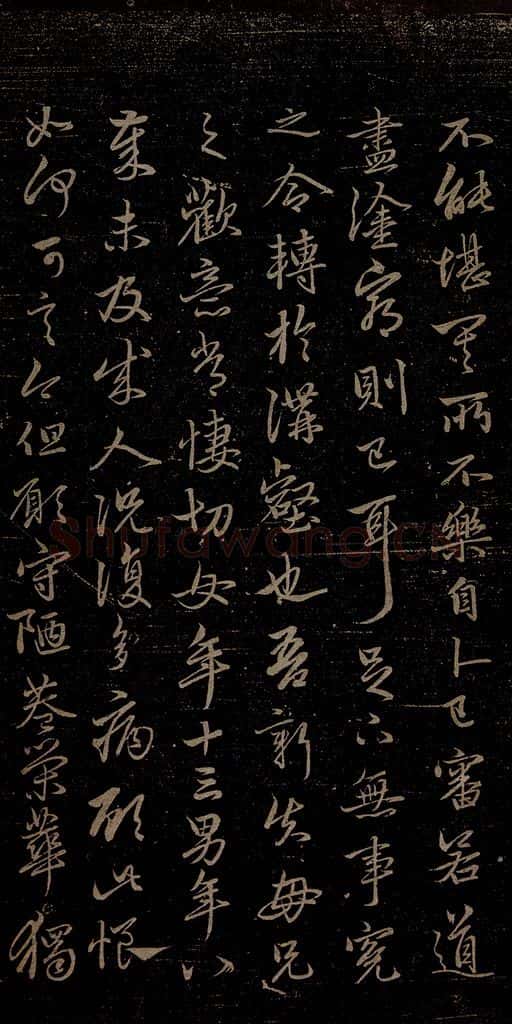 不能堪其所不樂自卜已審若道
盡塗窮則已耳足下無事冤
之令轉於溝壑也吾新失母兄
之歡意常悽切女年十三男年八
歲未及成人況復多病顧此悢
如何可言今但願守陋巷榮華獨
Shufawang.cn